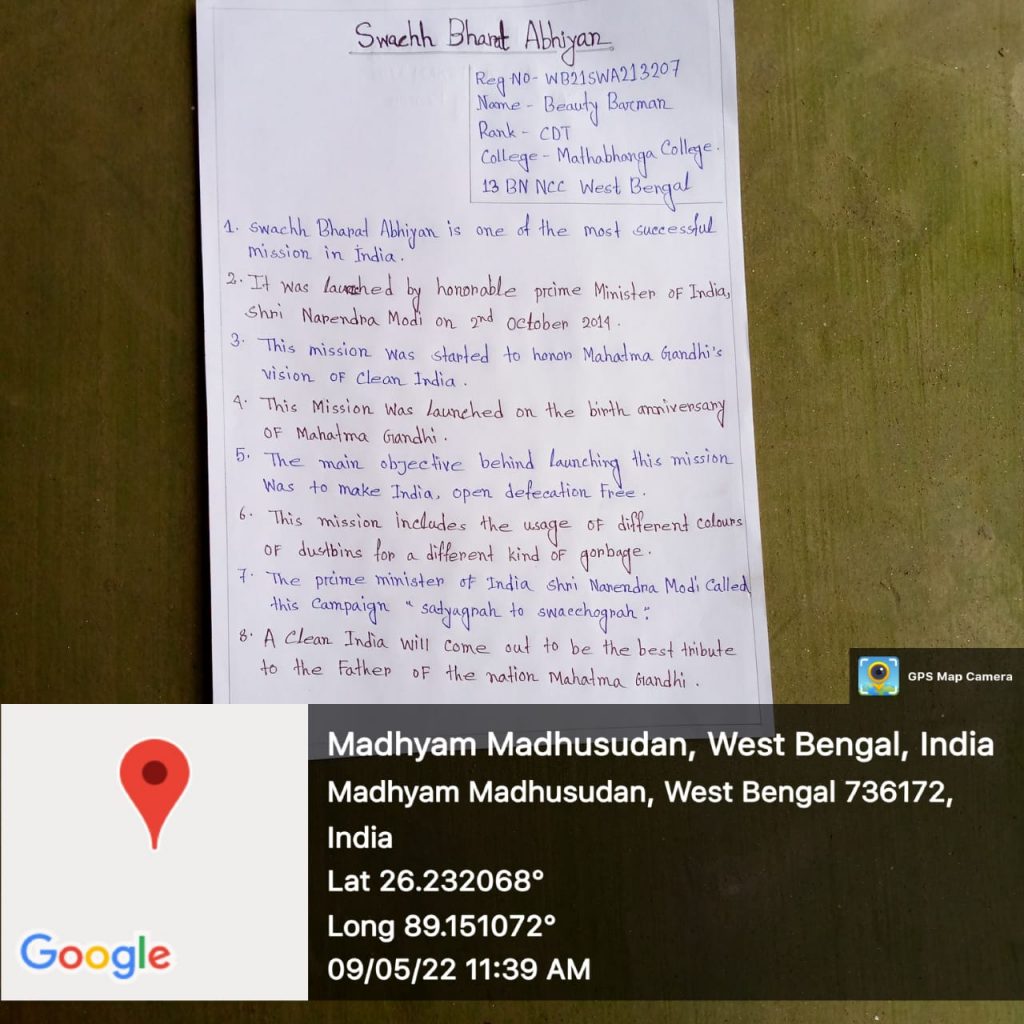 Swachh Bharat Abhiyan
Reg No- WB21SWA213207
Name - Beauty Barman
Rank - CDT
College - Mathabhanga College.
13 BN NCC West Bengal
1. Swachh Bharat Abhiyan is one of the most successful
mission in India.
2. It was launched by honorable prime Minister of India,
Shri Narendra Modi on 2nd October 2014.
3. This mission was started to honor Mahatma Gandhi's
vision of Clean India.
4. This Mission was launched on the birth anniversary
of Mahatma Gandhi.
5. The main objective behind launching this mission
was to make India, open defecation free.
6. This mission includes the usage of different colours
of dustbins for a different kind of gorbage.
7. The prime minister of India shri Narendra Modi called
this Campaign "satyagrah to swacchograh".
8. A Clean India will come out to be the best tribute
to the Father of the nation Mahatma Gandhi.
GPS Map Camera
Madhyam Madhusudan, West Bengal, India
Madhyam Madhusudan, West Bengal 736172,
India
Lat 26.232068°
Long 89.151072°
09/05/22 11:39 AM
Google